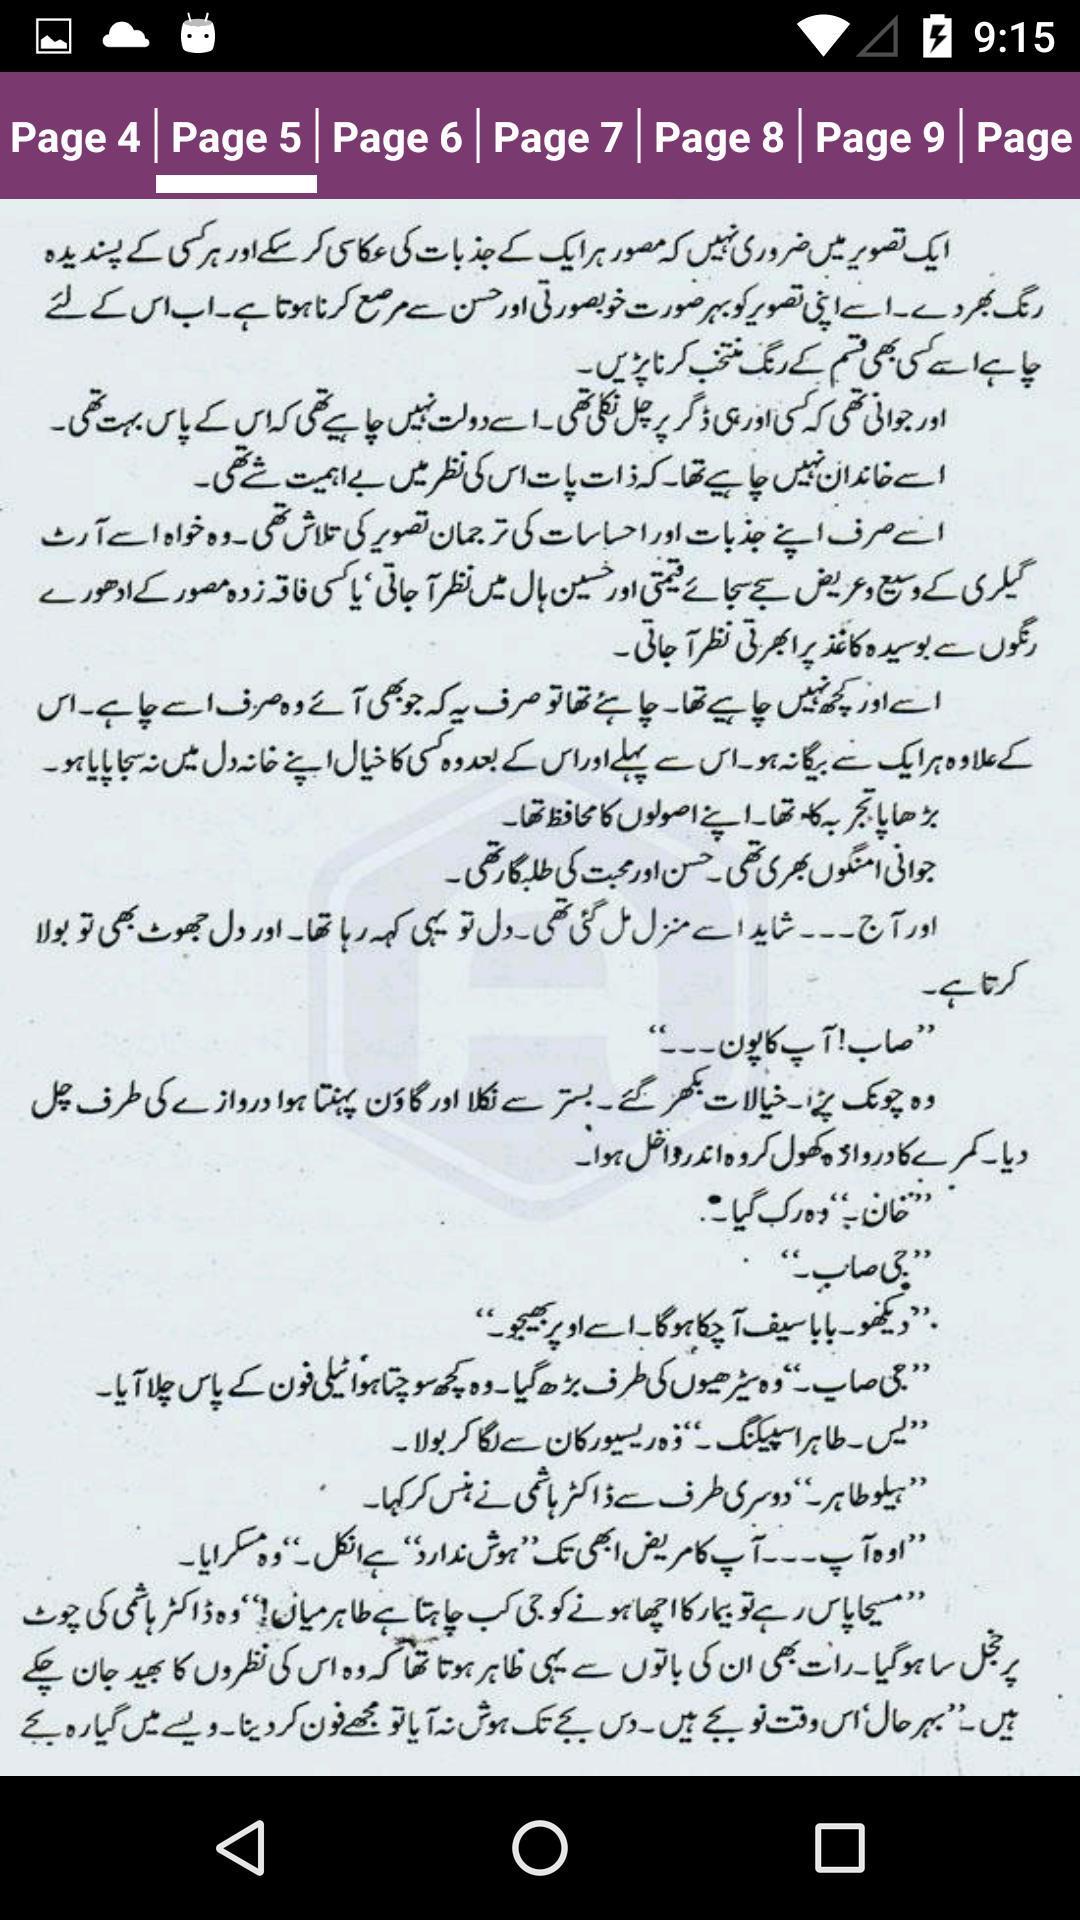 9:15
Page 4
Page 5
Page 6
Page 7
Page 8
Page 9
Page
ایک تصویر میں ضروری نہیں کہ مصور ہر ایک کے جذبات کی عکاسی کر سکے اور ہر کسی کے پسندیدہ
رنگ بھر دے۔ اسے اپنی تصویر کو بہر صورت خوبصورتی اور حسن سے مرصع کرنا ہوتا ہے۔ اب اس کے لئے
چاہے اسے کسی بھی قسم کے رنگ منتخب کرنا پڑیں۔
اور جوانی تھی کہ کسی اور ہی ڈگر پر چل نکلی تھی۔ اسے دولت نہیں چاہیے تھی کہ اس کے پاس بہت تھی۔
اسے خاندان نہیں چاہیے تھا۔ کہ ذات پات اس کی نظر میں بے اہمیت شے تھی۔
اسے صرف اپنے جذبات اور احساسات کی ترجمان تصویر کی تلاش تھی۔ وہ خواہ اسے آرٹ
گیلری کے وسیع و عریض سجے سجائے قیمتی اور حسین ہال میں نظر آ جاتی‘ یا کسی فاقہ زدہ مصور کے ادھورے
رنگوں سے بوسیدہ کاغذ پر ابھرتی نظر آ جاتی۔
اسے اور کچھ نہیں چاہیے تھا۔ چاہئے تھا تو صرف یہ کہ جو بھی آئے وہ صرف اسے چاہے۔ اس
کے علاوہ ہر ایک سے بیگانہ ہو۔ اس سے پہلے اور اس کے بعد وہ کسی کا خیال اپنے خانہ دل میں نہ سجا پایا ہو۔
بڑھاپا تجربہ کار تھا۔ اپنے اصولوں کا محافظ تھا۔
جوانی امنگوں بھری تھی۔ حسن اور محبت کی طلبگار تھی۔
اور آج۔۔۔ شاید اسے منزل مل گئی تھی۔ دل تو یہی کہہ رہا تھا۔ اور دل جھوٹ بھی تو بولا
کرتا ہے۔
’’صاب! آپ کا پون۔۔۔‘‘
وہ چونک پڑا۔ خیالات بکھر گئے۔ بستر سے نکلا اور گاؤن پہنتا ہوا دروازے کی طرف چل
دیا۔ کمرے کا دروازہ کھول کر وہ اندر داخل ہوا۔
’’خان۔‘‘ وہ رک گیا۔
’’جی صاب۔‘‘
’’دیکھو۔ بابا سیف آ چکا ہو گا۔ اسے اوپر بھیجو۔‘‘
’’جی صاب۔‘‘ وہ سیڑھیوں کی طرف بڑھ گیا۔ وہ کچھ سوچتا ہوا ٹیلی فون کے پاس چلا آیا۔
’’یس۔ طاہر اسپیکنگ۔‘‘ وہ ریسیور کان سے لگا کر بولا۔
’’ہیلو طاہر۔‘‘ دوسری طرف سے ڈاکٹر ہاشمی نے ہنس کر کہا۔
’’اوہ آپ۔۔۔ آپ کا مریض ابھی تک ’’ہوش ندارد‘‘ ہے انکل۔‘‘ وہ مسکرایا۔
’’مسیحا پاس رہے تو بیمار کا اچھا ہونے کو جی کب چاہتا ہے طاہر میاں!‘‘ وہ ڈاکٹر ہاشمی کی چوٹ
پر خجل سا ہو گیا۔ رات بھی ان کی باتوں سے یہی ظاہر ہوتا تھا کہ وہ اس کی نظروں کا بھید جان چکے
ہیں۔ ’’بہرحال‘ اس وقت نو بجے ہیں۔ دس بجے تک ہوش نہ آیا تو مجھے فون کر دینا۔ ویسے میں گیارہ بجے